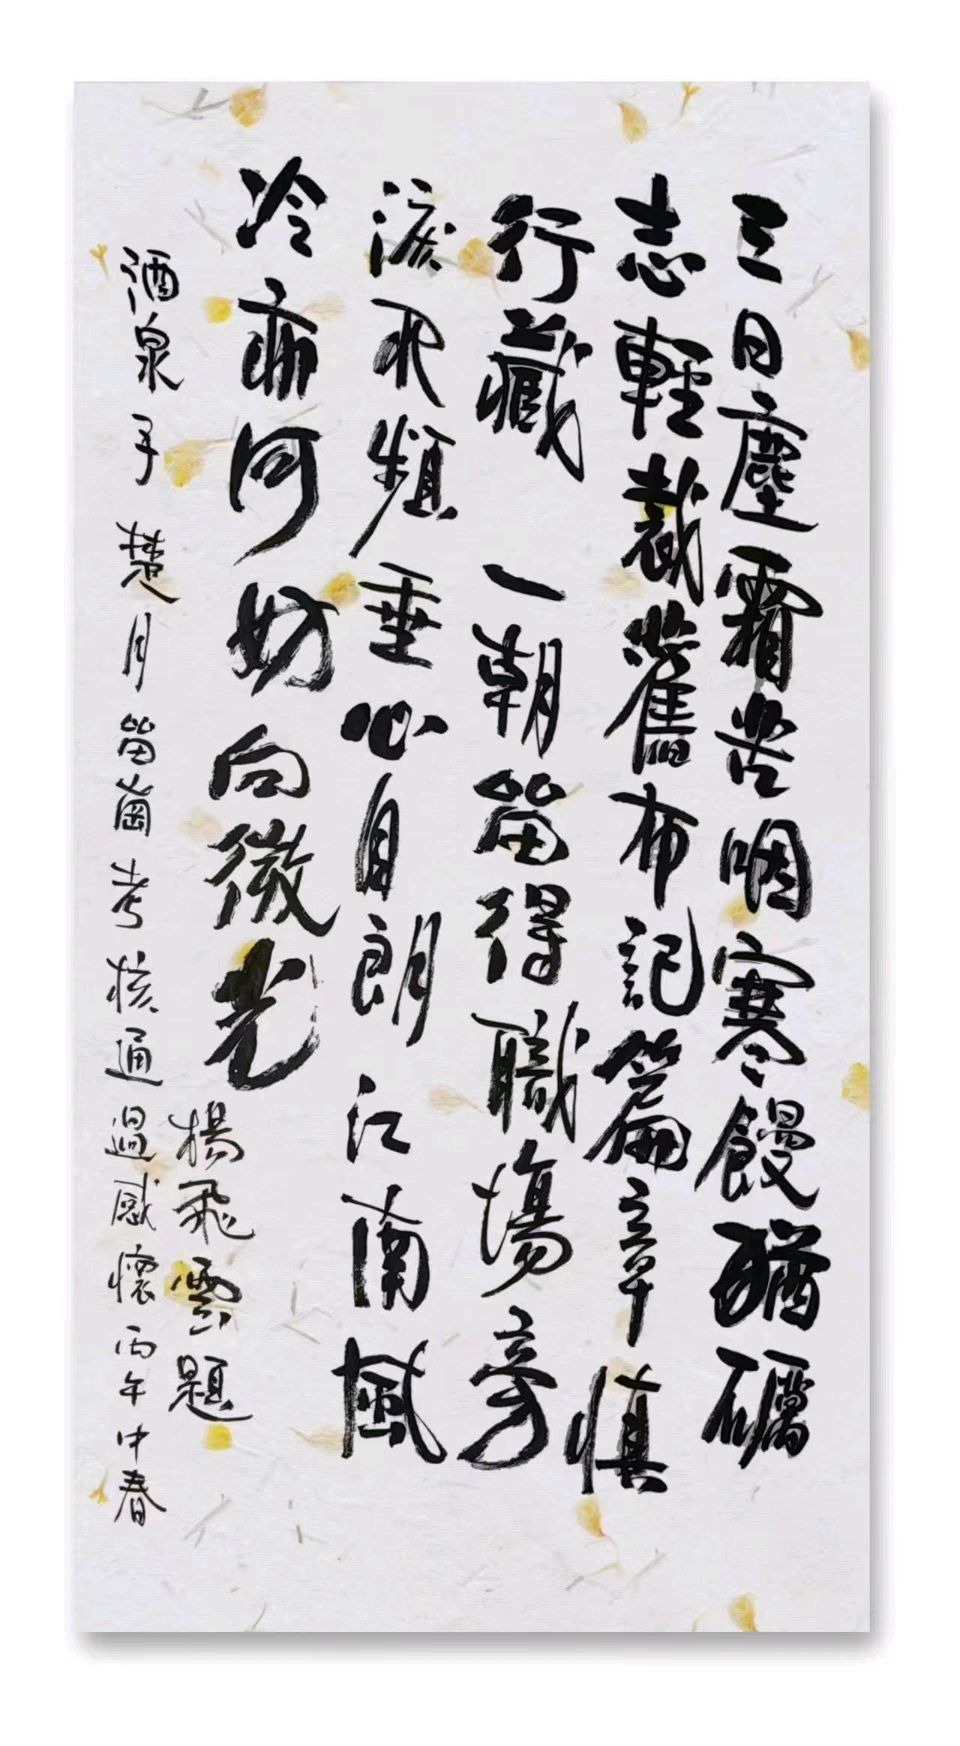 三日塵霜苦咽寒饅猶礪
志輕裁舊布記篇章慎
行藏 一朝留得職場旁
淚不頻垂心自朗江南風
冷亦何妨向微光
楊飛雲題
酒泉子 楚月留崗考核通過感懷丙午中春